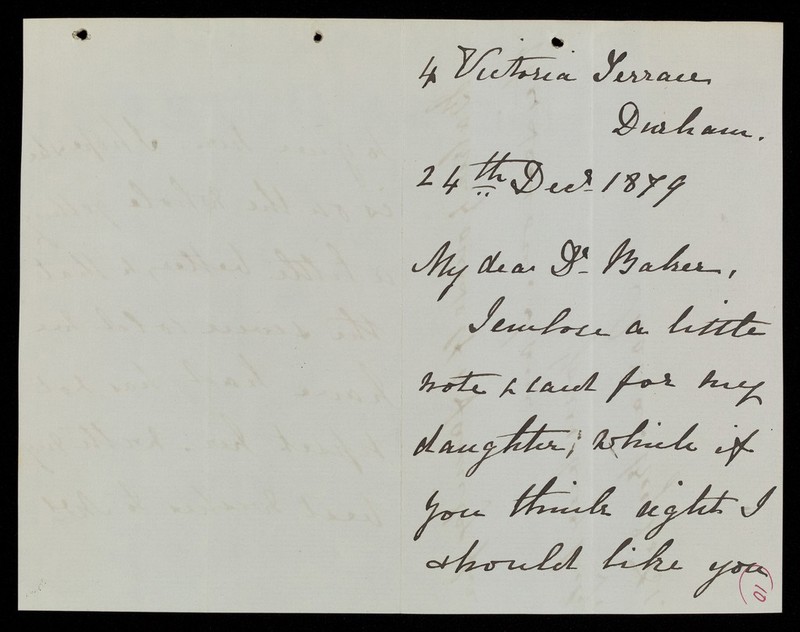 4 Victoria Terrace
Durham.
24th Decr 1879
My dear Dr Baker,
I enclose a little
note & card for my
daughter, which if
you think right I
should like you
10